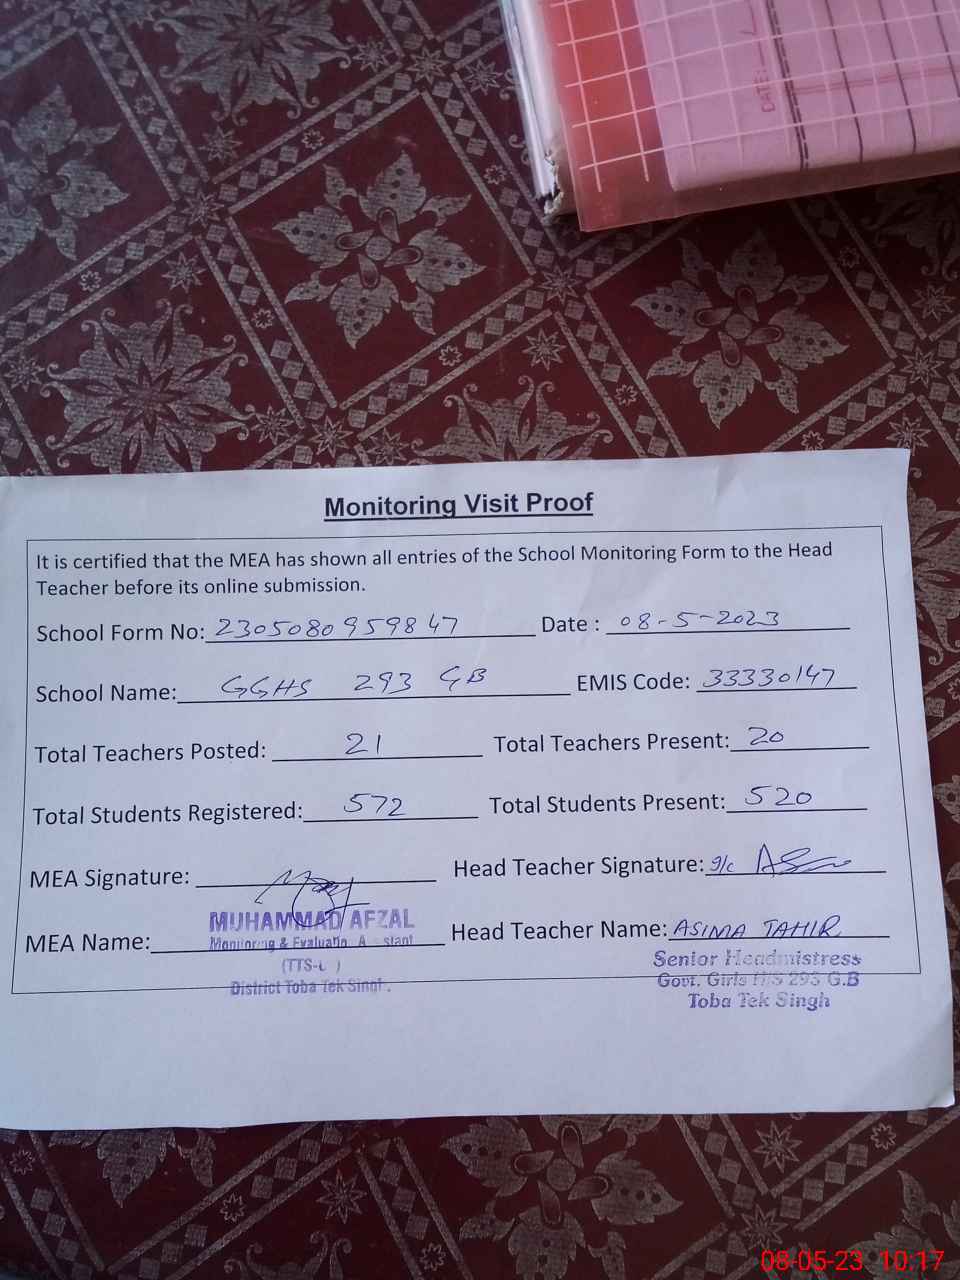 DATE: / /
Monitoring Visit Proof
It is certified that the MEA has shown all entries of the School Monitoring Form to the Head
Teacher before its online submission.
School Form No: 230508095984 7 Date : 08-5-2023
School Name: GGHS 293 GB EMIS Code: 33330147
Total Teachers Posted: 21 Total Teachers Present: 20
Total Students Registered: 572 Total Students Present: 520
MEA Signature: Head Teacher Signature: g/c
MUHAMMAD AFZAL
MEA Name: Monitoring & Evaluation Head Teacher Name: ASIMA TAHIR
(TTS- )
District Toba Tek Singh.
Senior Headmistress
Govt. Girls H/S 293 G.B
Toba Tek Singh
08-05-23 10:17